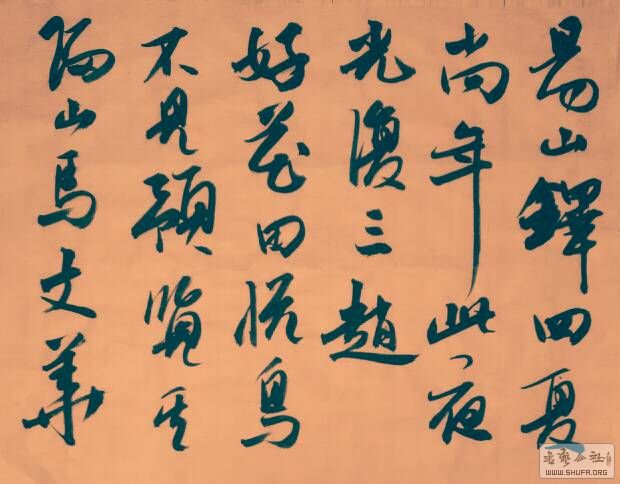 易山鐸四夏
尚年此夜
光復三趙
好花田悦鳥
不見顧覽其
陽山馬丈華
書藝公社
WWW.SHUFA.ORG